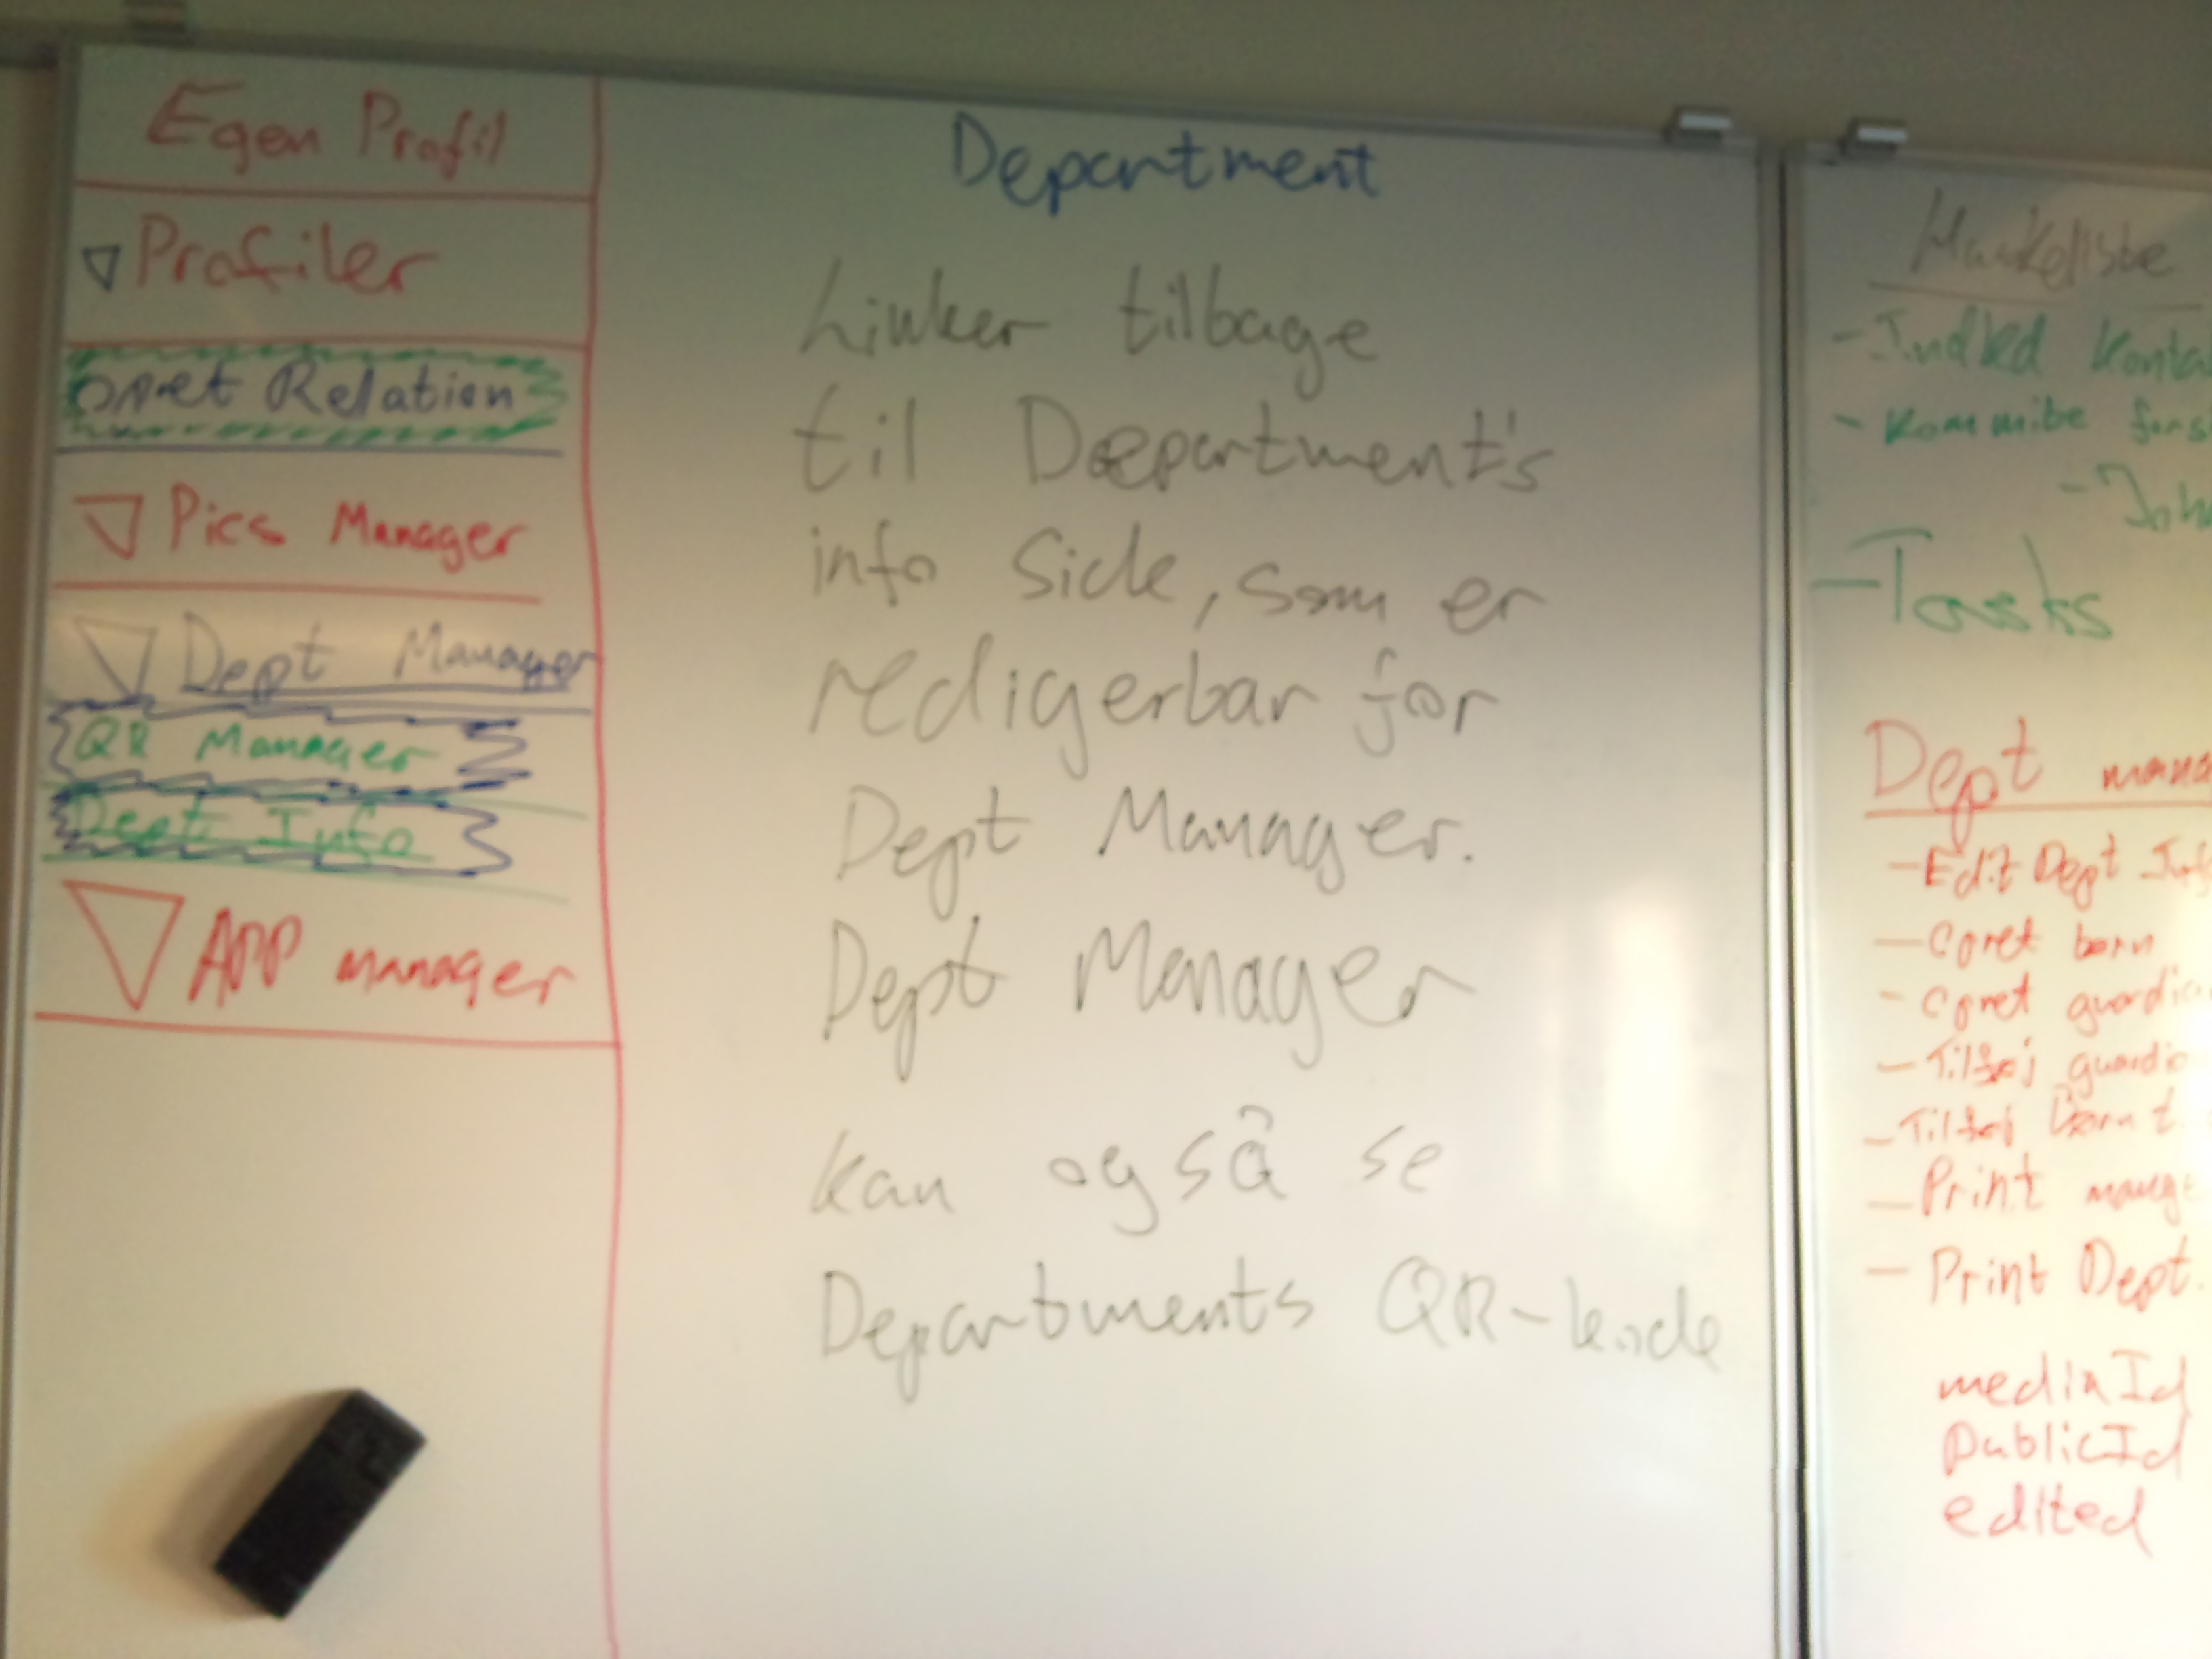 Egen Profil
Profiler
Opret Relation
Pics Manager
Dept Manager
QR Manager
Dept Info
APP manager
Department
Linker tilbage
til Department's
info side, som er
redigerbar for
Dept Manager.
Dept Manager
kan også se
Departments QR-kode
Huskeliste
- Indled konta
- Kommite
- Joh
- Tasks
Dept mana
- Edit Dept Inf
- Opret børn
- Opret guardia
- Tilføj guardia
- Tilføj børn t
- Print
- Print Dept.
mediaId
publicId
edited